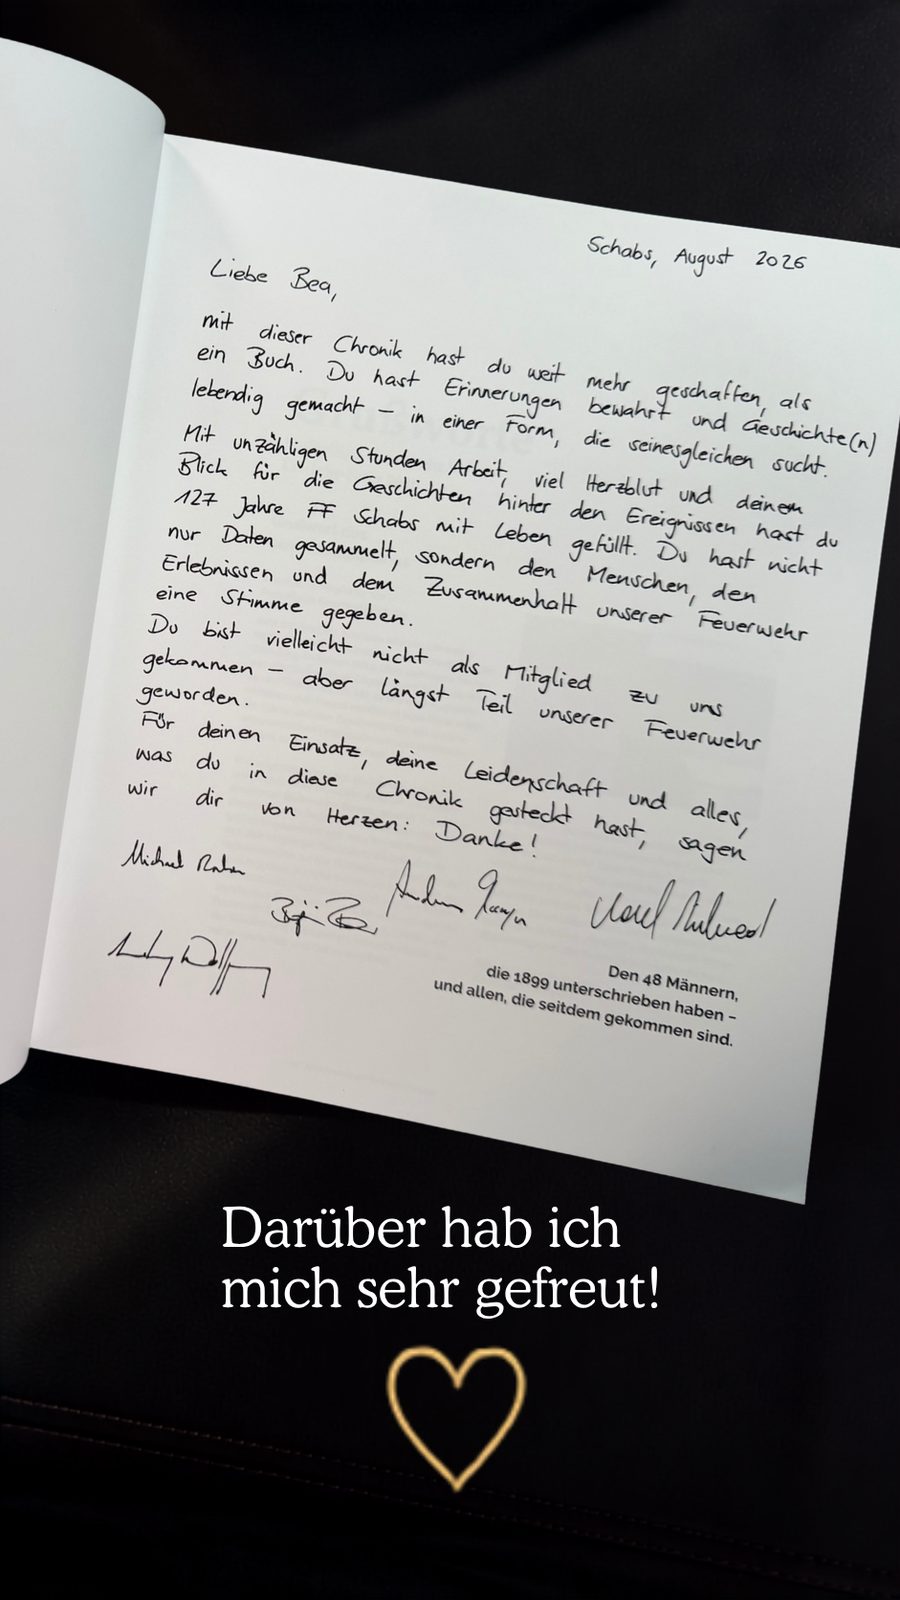 Schabs, August 2026
Liebe Bea,
mit dieser Chronik hast du weit mehr geschaffen, als
ein Buch. Du hast Erinnerungen bewahrt und Geschichte(n)
lebendig gemacht – in einer Form, die seinesgleichen sucht.
Mit unzähligen Stunden Arbeit, viel Herzblut und deinem
Blick für die Geschichten hinter den Ereignissen hast du
127 Jahre FF Schabs mit Leben gefüllt. Du hast nicht
nur Daten gesammelt, sondern den Menschen, den
Erlebnissen und dem Zusammenhalt unserer Feuerwehr
eine Stimme gegeben.
Du bist vielleicht nicht als Mitglied zu uns
gekommen – aber längst Teil unserer Feuerwehr
geworden.
Für deinen Einsatz, deine Leidenschaft und alles,
was du in diese Chronik gesteckt hast, sagen
wir dir von Herzen: Danke!
Michael
Den 48 Männern,
die 1899 unterschrieben haben –
und allen, die seitdem gekommen sind.
Darüber hab ich
mich sehr gefreut!